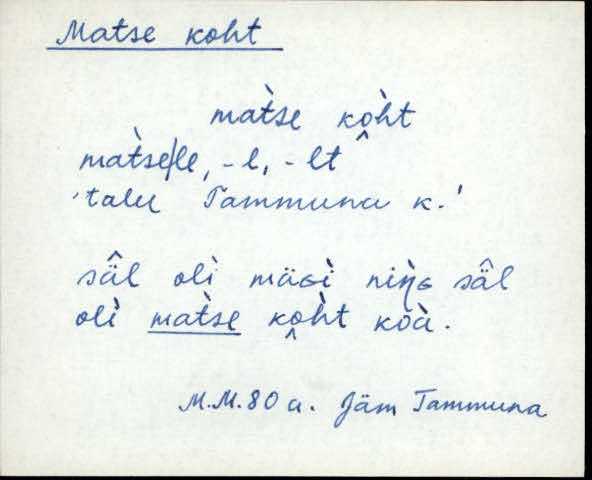 Matse koht
màt̀se ko̭h̀t
màtse|le, -l, -lt
'talu Tammuna k.'
sä̂l olì mäɢì nìŋɢ sä̂l
olì mat̀se ko̭h̀t kòà.
M.M. 80 a. Jäm Tammuna